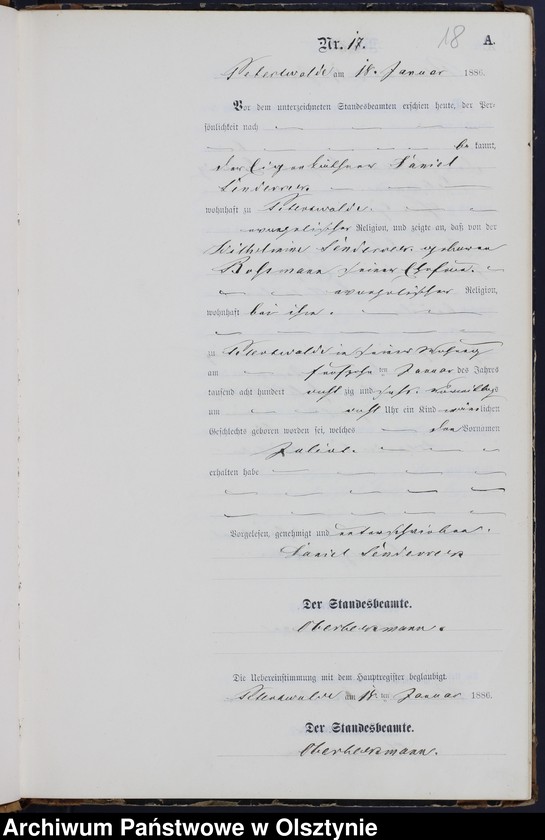 18
Nr. 17. A.
Peterswalde am 18. Januar 1886.
Vor dem unterzeichneten Standesbeamten erschien heute, der Per-
sönlichkeit nach
be kannt,
der Eigenkäthner Daniel
wohnhaft zu Peterswalde.
evangelischer Religion, und zeigte an, daß von der
Wilhelmine geborenen
seiner Ehefrau.
evangelischer Religion,
wohnhaft bei ihm.
zu Peterswalde in seiner Wohnung
am fünfzehn ten Januar des Jahres
tausend acht hundert acht zig und sechs. Vormittags
um acht Uhr ein Kind männlichen
Geschlechts geboren worden sei, welches den Vornamen
erhalten habe
Vorgelesen, genehmigt und unterschrieben.
Daniel
Der Standesbeamte.
Oberbeckmann.
Die Uebereinstimmung mit dem Hauptregister beglaubigt.
Peterswalde am 18 ten Januar 1886.
Der Standesbeamte.
Oberbeckmann.
Archiwum Państwowe w Olsztynie